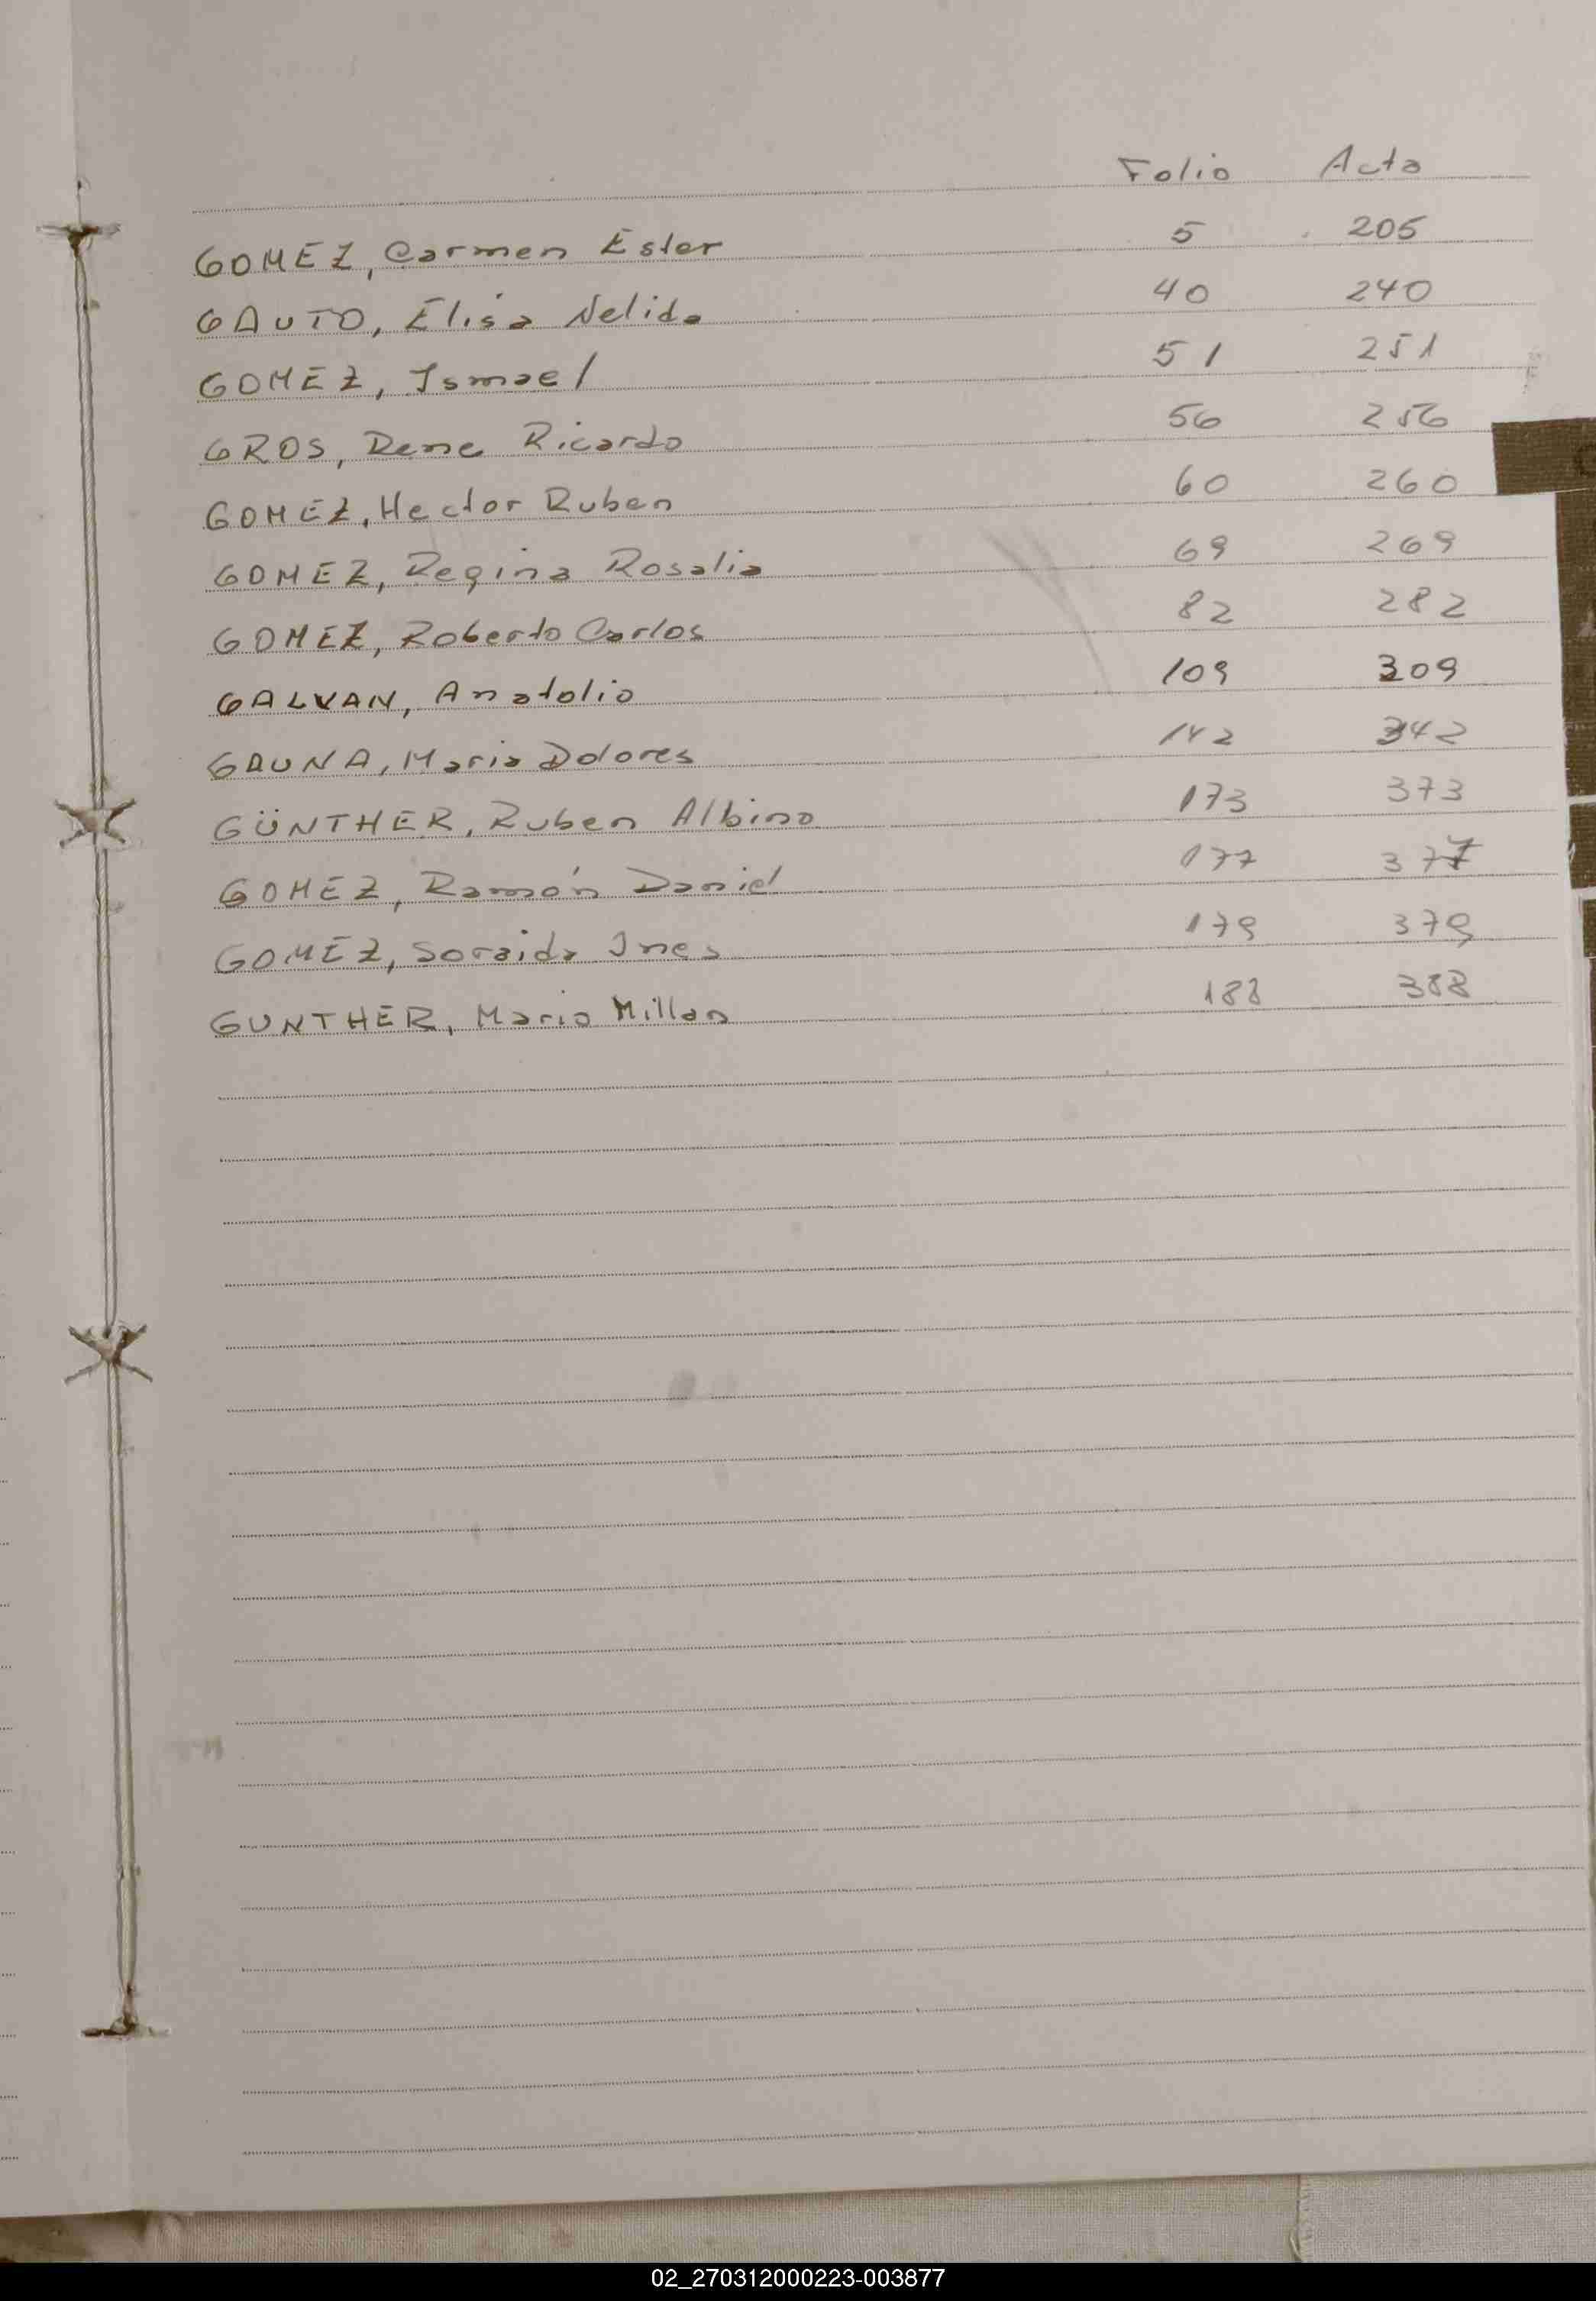 Folio Acta
GOMEZ, Carmen Ester 5 205
GAUTO, Elisa Nelida 40 240
GOMEZ, Ismael 51 251
GROS, Rene Ricardo 56 256
GOMEZ, Hector Ruben 60 260
GOMEZ, Regina Rosalia 69 269
GOMEZ, Roberto Carlos 82 282
GALVAN, Anatolio 109 309
GAUNA, Maria Dolores 142 342
GÜNTHER, Ruben Albino 173 373
GOMEZ, Ramón Daniel 177 377
GOMEZ, Soraida Ines 179 379
GUNTHER, Mario Millan 188 388
02_270312000223-003877